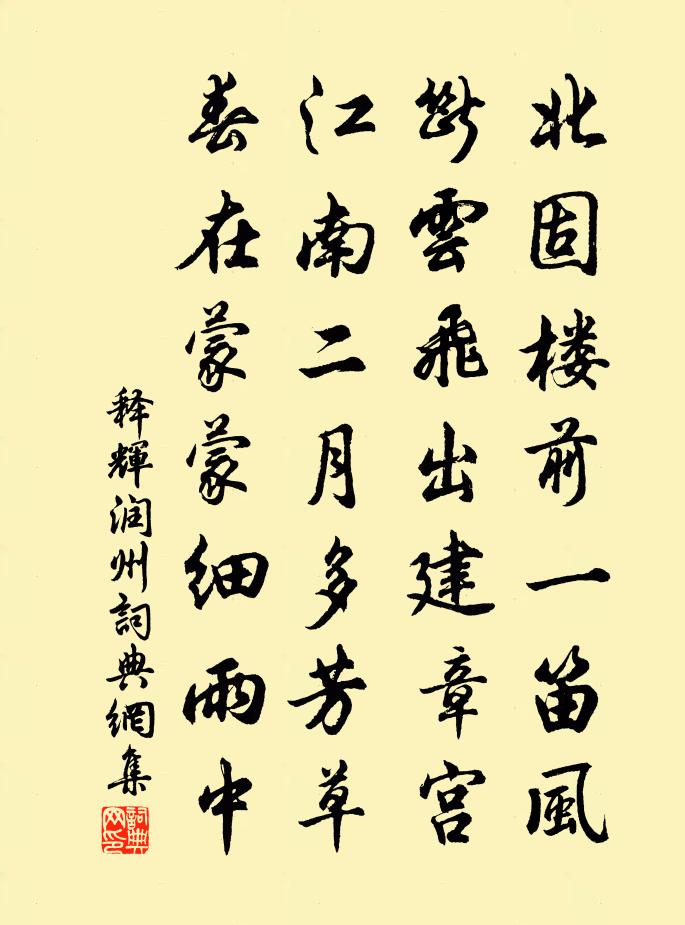 北固楼前一笛風
斷雲飛出建章宫
江南二月多芳草
春在蒙蒙細雨中
释輝润州詞典網集
詞典网印